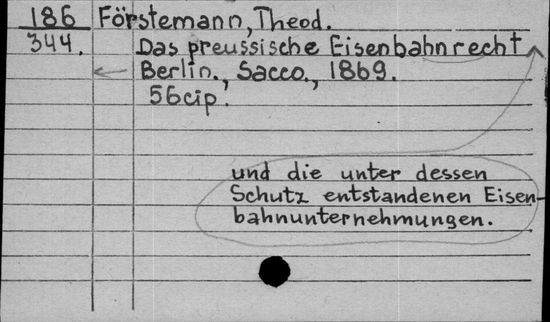 186 Förstemann, Theod.
344. Das preussische Eisenbahnrecht
Berlin., Sacco., 1869.
56cip.
und die unter dessen
Schutz entstandenen Eisen-
bahnunternehmungen.